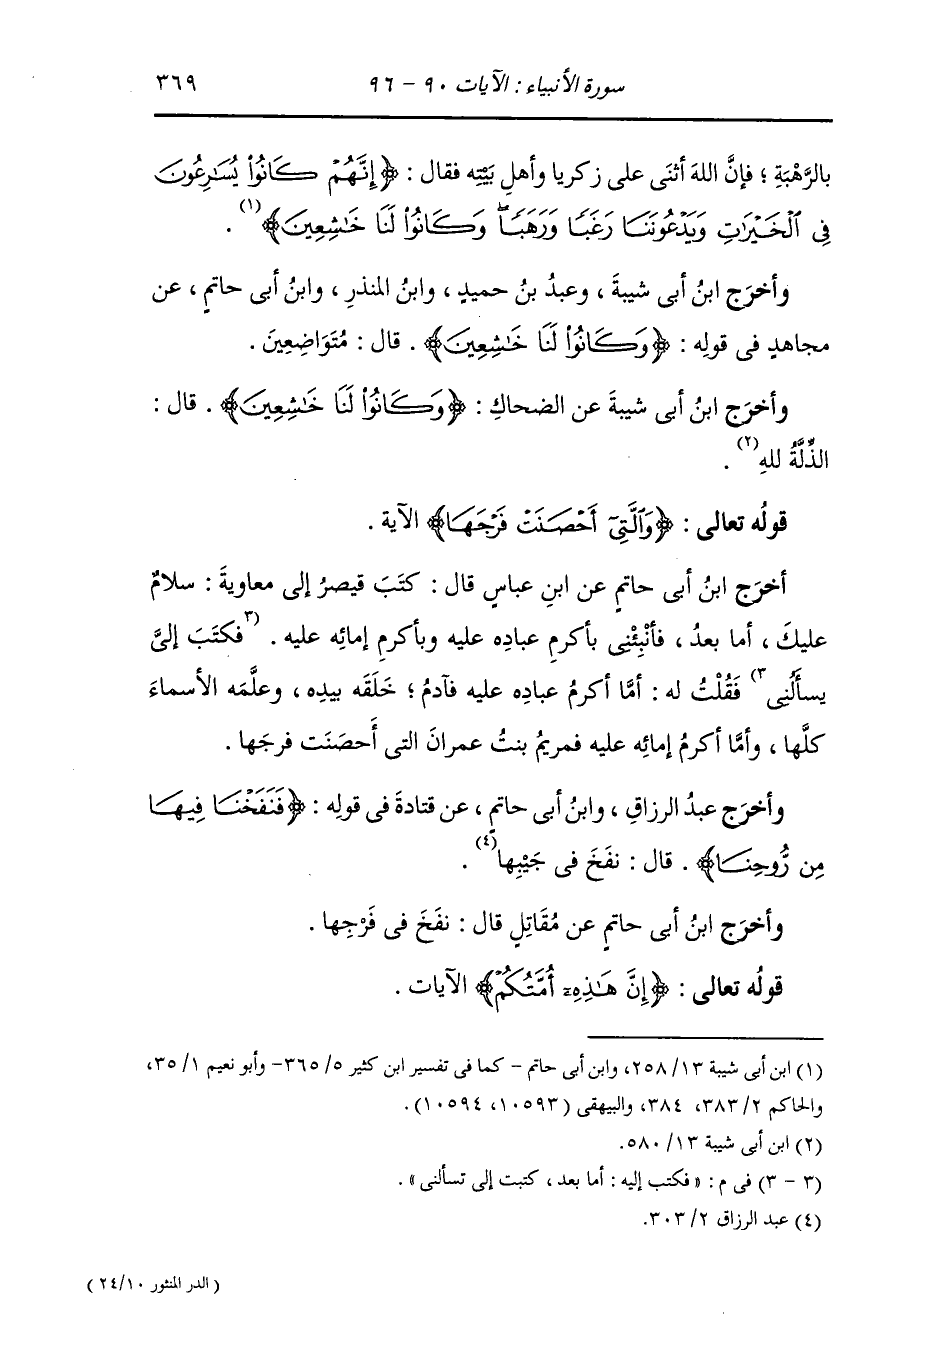 سورة الأنبياء : الآيات ٩٠ – ٩٦ ٣٦٩
بالرَّهْبَةِ ؛ فإنَّ اللهَ أثنَى على زكريا وأهلِ بَيْتِه فقال : ﴿إِنَّهُمْ كَانُوا۟ يُسَـٰرِعُونَ
فِى ٱلْخَيْرَٰتِ وَيَدْعُونَنَا رَغَبًا وَرَهَبًا ۖ وَكَانُوا۟ لَنَا خَـٰشِعِينَ﴾(١) .
وأخرَج ابنُ أبى شيبةَ ، وعبدُ بنُ حميدٍ ، وابنُ المنذرِ ، وابنُ أبى حاتمٍ ، عن
مجاهدٍ فى قولِه : ﴿وَكَانُوا۟ لَنَا خَـٰشِعِينَ﴾ . قال : مُتَوَاضِعِينَ .
وأخرَج ابنُ أبى شيبةَ عن الضحاكِ : ﴿وَكَانُوا۟ لَنَا خَـٰشِعِينَ﴾ . قال :
الذِّلَّةُ للهِ(٢) .
قولُه تعالى : ﴿وَٱلَّتِىٓ أَحْصَنَتْ فَرْجَهَا﴾ الآية .
أخرَج ابنُ أبى حاتمٍ عن ابنِ عباسٍ قال : كتَبَ قيصرُ إلى معاويةَ : سلامٌ
عليكَ ، أما بعدُ ، فأنْبِئْنِى بأكرمِ عبادِه عليه وبأكرمِ إمائِه عليه . (٣فكتَبَ إلىَّ
يسألُنِى٣) فَقُلْتُ له : أمَّا أكرمُ عبادِه عليه فآدمُ ؛ خلَقَه بيدِه ، وعلَّمَه الأسماءَ
كلَّها ، وأمَّا أكرمُ إمائِه عليه فمريمُ بنتُ عمرانَ التى أَحصَنَت فرجَها .
وأخرَج عبدُ الرزاقِ ، وابنُ أبى حاتمٍ ، عن قتادةَ فى قولِه : ﴿فَنَفَخْنَا فِيهَا
مِن رُّوحِنَا﴾ . قال : نفَخَ فى جَيْبِها(٤) .
وأخرَج ابنُ أبى حاتمٍ عن مُقَاتِلٍ قال : نفَخَ فى فَرْجِها .
قولُه تعالى : ﴿إِنَّ هَـٰذِهِۦٓ أُمَّتُكُمْ﴾ الآيات .
(١) ابن أبى شيبة ١٣/ ٢٥٨، وابن أبى حاتم - كما فى تفسير ابن كثير ٥/ ٣٦٥- وأبو نعيم ١/ ٣٥،
والحاكم ٢/ ٣٨٣، ٣٨٤، والبيهقى (١٠٥٩٣، ١٠٥٩٤).
(٢) ابن أبى شيبة ١٣/ ٥٨٠.
(٣ - ٣) فى م : « فكتب إليه : أما بعد ، كتبت إلى تسألنى » .
(٤) عبد الرزاق ٢/ ٣٠٣.
( الدر المنثور ٢٤/١٠ )